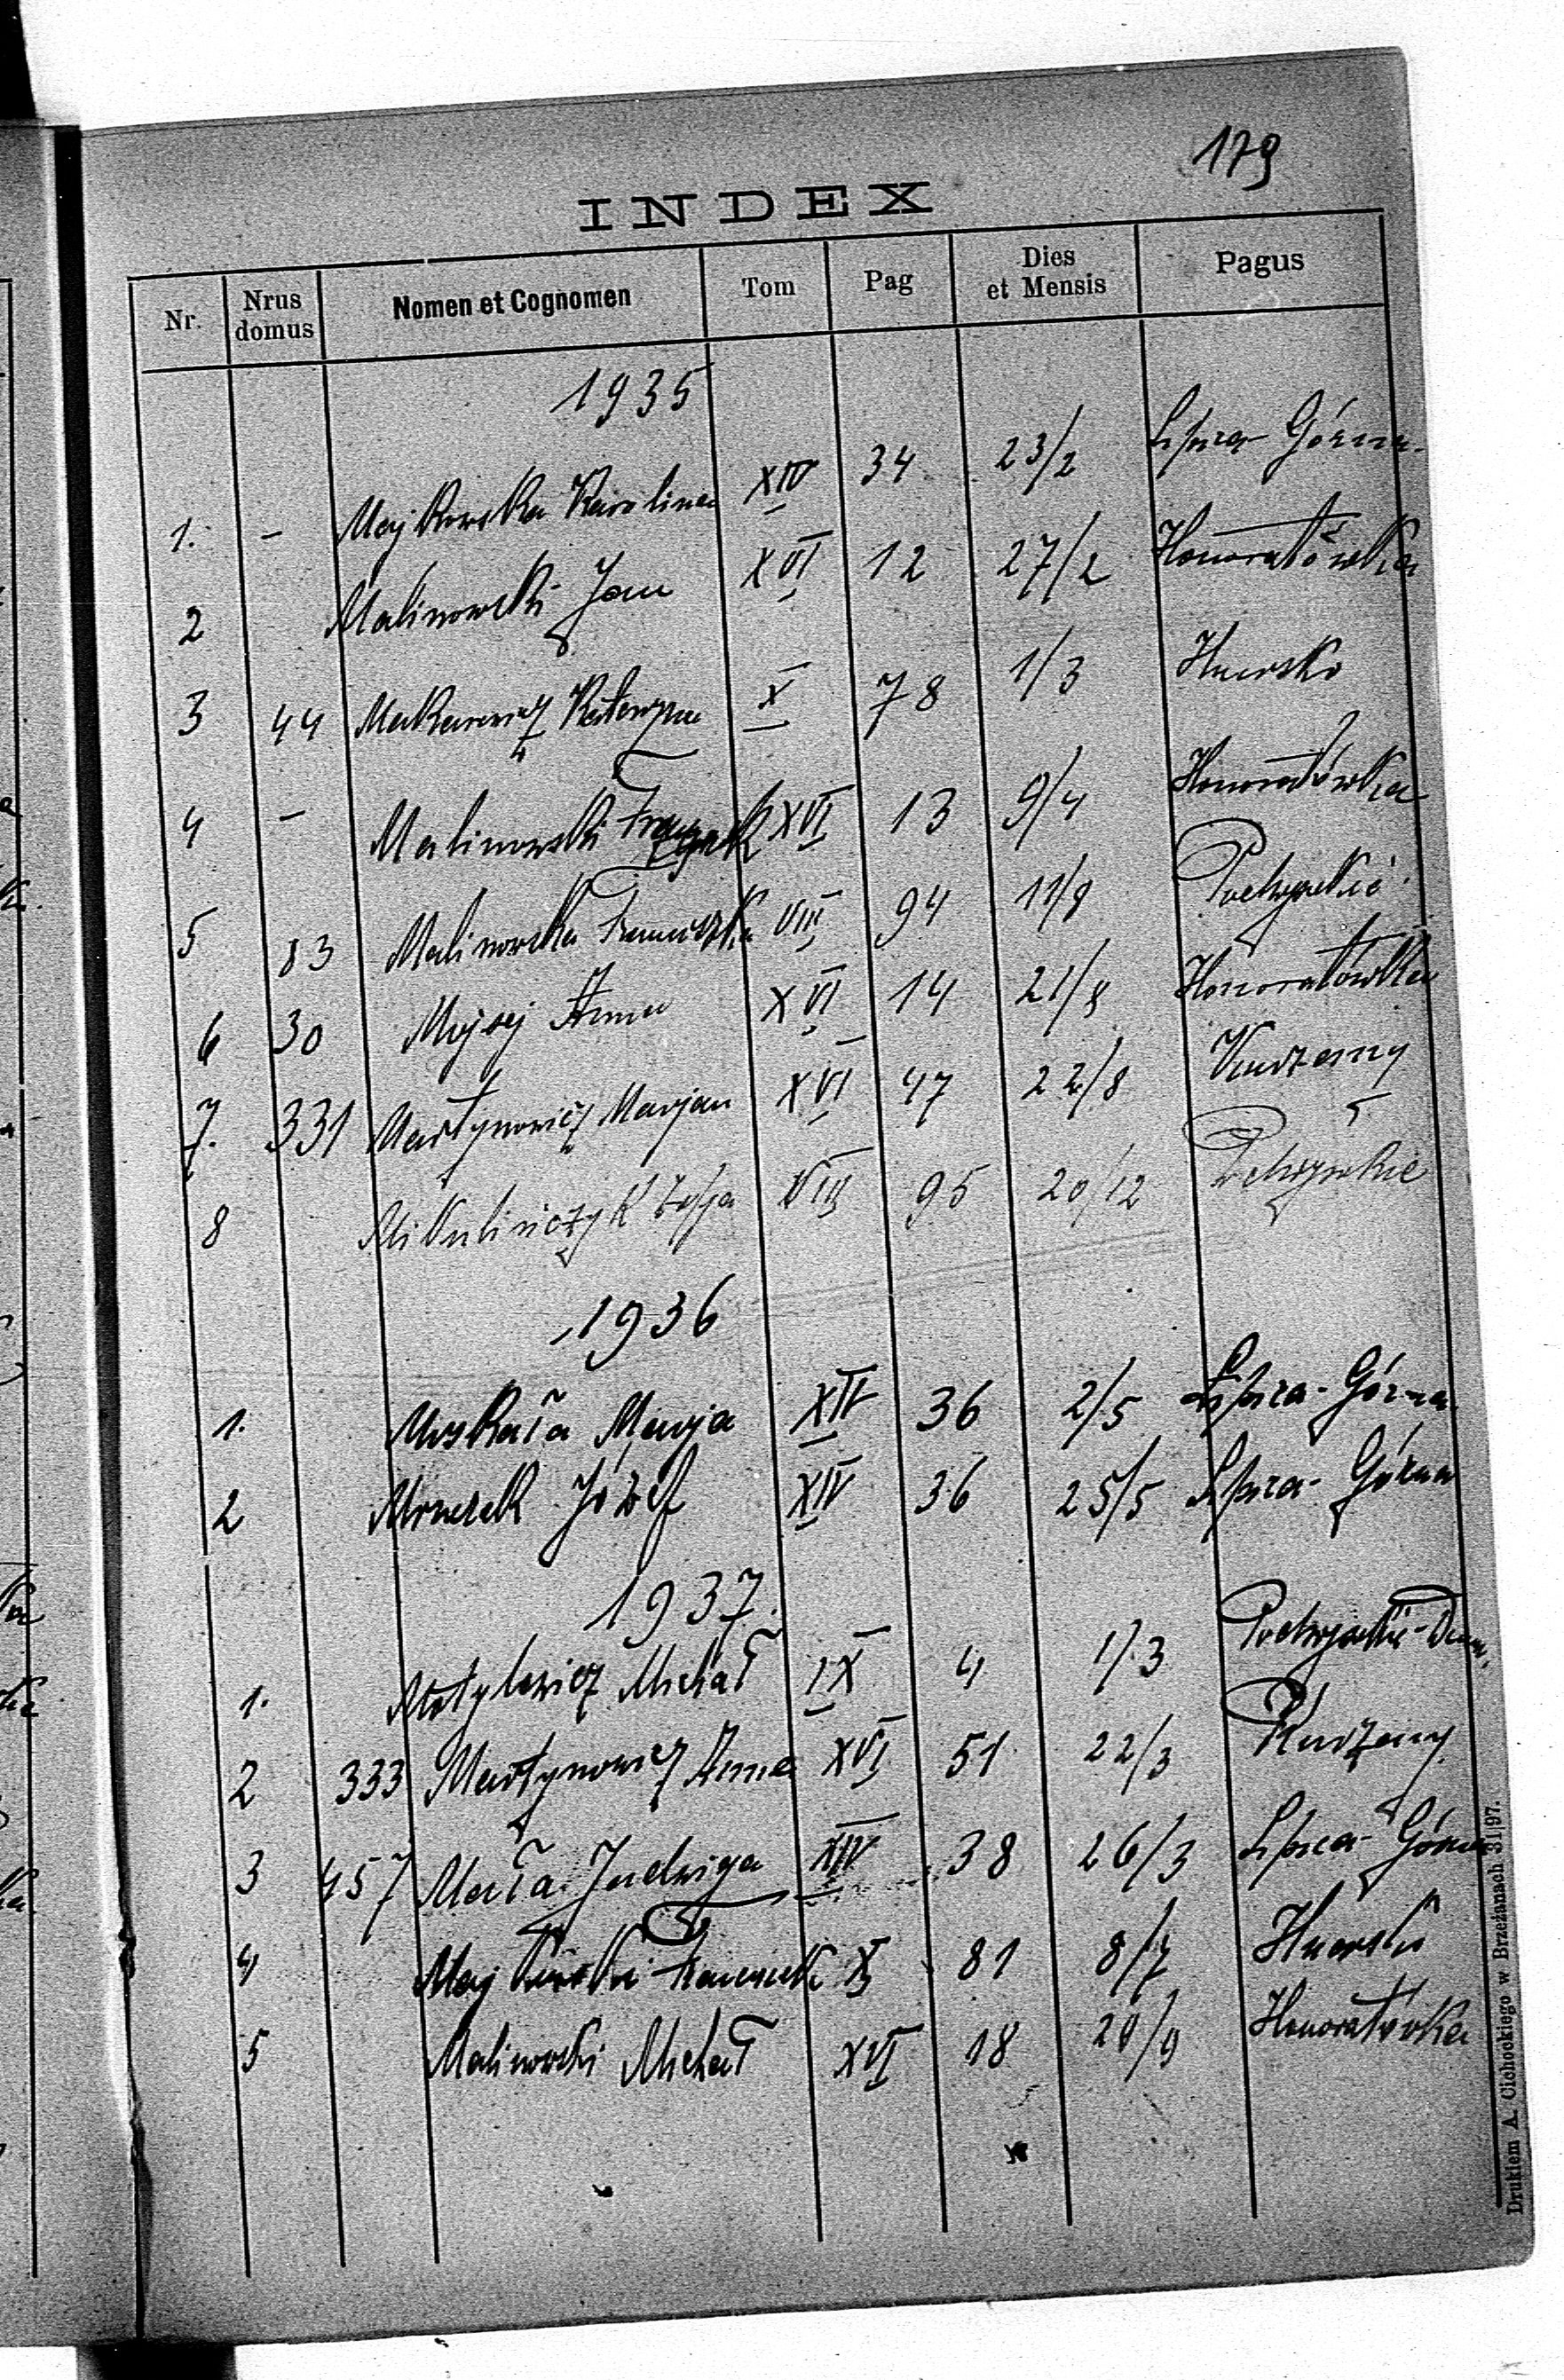 179
INDEX
Nr. Nrus domus Nomen et Cognomen Tom Pag Dies et Mensis Pagus
1935
1. - Majkowska Karolina XIV 34 23/2 Lipica-Górna
2 Malinowski Jan XVI 12 27/2 Honoratówka
3 44 Makarewicz Katarzyna X 78 1/3 Hnowsko
4 - Malinowski XVI 13 9/4 Honoratówka
5 83 Malinowska Franciszka VIII 94 11/8 Potrzewkie
6 30 Mojsej Anna XVI 14 21/8 Honoratówka
7. 331 Martynowicz Marjan XVI 47 22/8 Kurzany
8 Mikuliniczyk Zofja VIII 95 20/12
1936
1. Muskała Marja XIV 36 2/5 Lipica-Górna
2 Mroczek Józef XIV 36 25/5 Lipica-Górna
1937.
1. Motylewicz Michał IX 4 1/3
2 333 Martynowicz Anna XVI 51 22/3 Kurzany
3 457 Mała Jadwiga XIV 38 26/3 Lipica-Górna
4 X 81 8/7
5 Malinowski Michał XVI 18 20/9 Honoratówka
Drukiem A. Cichockiego w Brzeżanach 31|97.